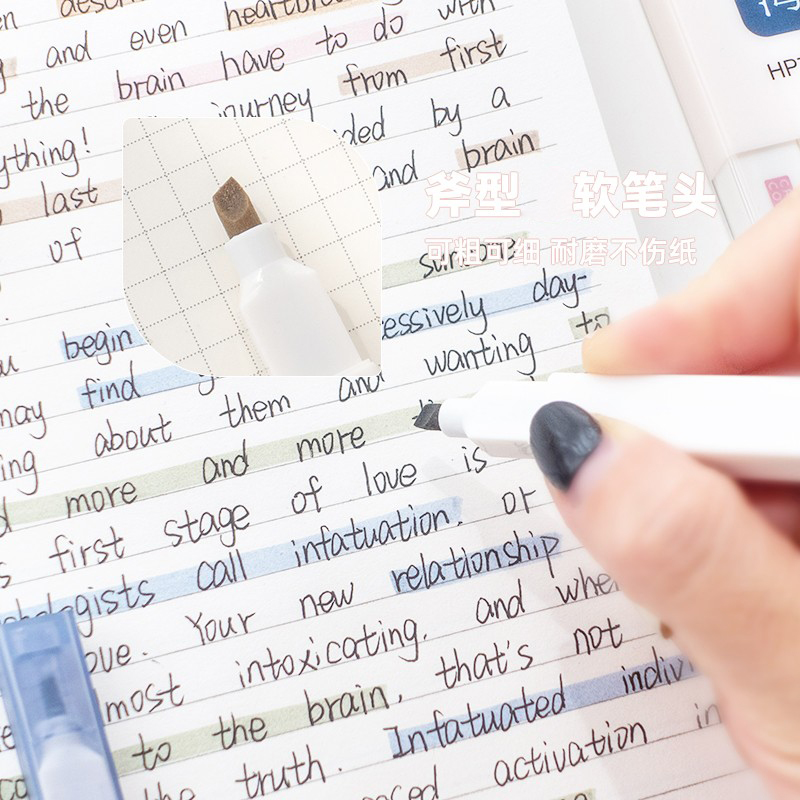 and even heartbrea
the brain have to do with
journey from first
ything!
ded by a
last
and brain
of
斧型 软笔头
可粗可细 耐磨不伤纸
begin
essively day-
may find
wanting to
ing about them and
more and more
first stage of love is
ologists call infatuation. or
relationship
Your new
most intoxicating. and whe
to the brain, that's not
the truth. Infatuated indivi
activation in